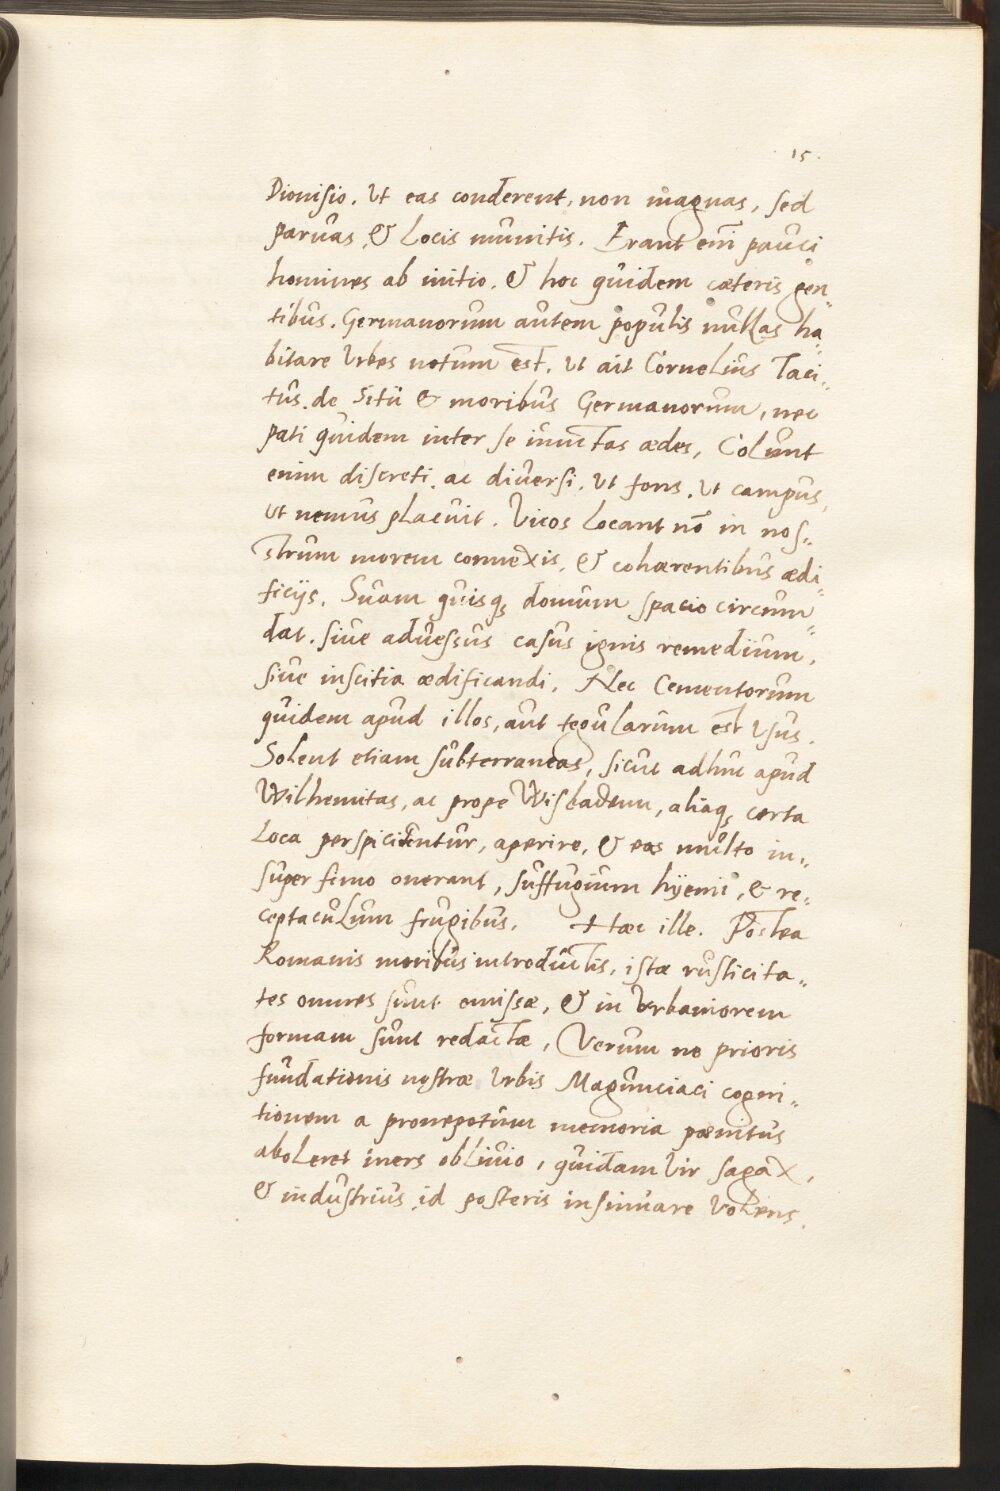 15.
Dionisio. Ut eas conderent, non magnas, sed
paruas, & Locis munitis. Erant em̄ pauci
homines ab initio. & hoc quidem cæteris gen„
tibus. Germanorum autem populis nullas ha„
bitare Urbes notum est. Ut ait Cornelius Taci„
tus. de Sitü & moribus Germanorum, nec
pati quidem inter se iunctas ædes, Colunt
enim discreti. ac diuersi. Ut fons. Ut campus,
ut nemus placuit. Vicos locant nō in nos„
strum morem connexis, & cohærentibus ædi„
ficijs. Suam quisq; domum spacio circum„
dat. siue aduessus casus ignis remedium,
siue inscitia ædificandi, Nec Cementorum
quidem apud illos, aut tegularum est Usus.
Solent etiam subterraneas, sicut adhuc apud
Wilhemitas, ac prope Wisbadenn, aliaq; certa
Loca perspiciuntur, aperire, & eas multo in„
super fimo onerant, suffugium hyemi, & re„
ceptaculum frugibus. Hæc ille. Postea
Romanis moribus introductis, istæ rusticita„
tes omnes sunt omissæ, & in Urbaniorem
formam sunt redactæ, Verum ne prioris
fundationis nostræ Urbis Magunciaci cogni„
tionem a pronepotum memoria pænitus
aboleret iners obliuio, quidam Vir sagax,
& industrius, id posteris insinuare Volens.